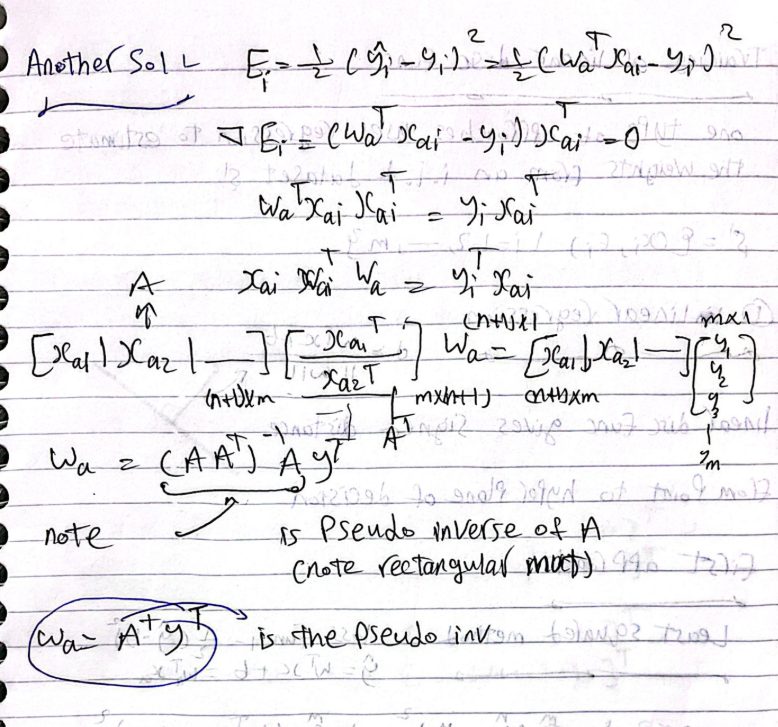 Another Sol L E_i = 1/2 (ŷ_i - y_i)^2 = 1/2 (w_a^T x_ai - y_i)^2
∇ E_i = (w_a^T x_ai - y_i) x_ai^T = 0
w_a^T x_ai x_ai^T = y_i x_ai^T
x_ai x_ai^T w_a = y_i^T x_ai
A
(n+1)x1
mx1
[x_a1 | x_a2 | —] [x_a1^T x_a2^T] w_a = [x_a1 | x_a2 | —] [y_1 y_2 y_3 | y_m]
(n+1)xm mx(n+1) (n+1)xm
A^T
w_a = (A A^T)^-1 A y^T
note is Pseudo inverse of A
(note rectangular mat)
w_a = A^+ y^T is the Pseudo inv